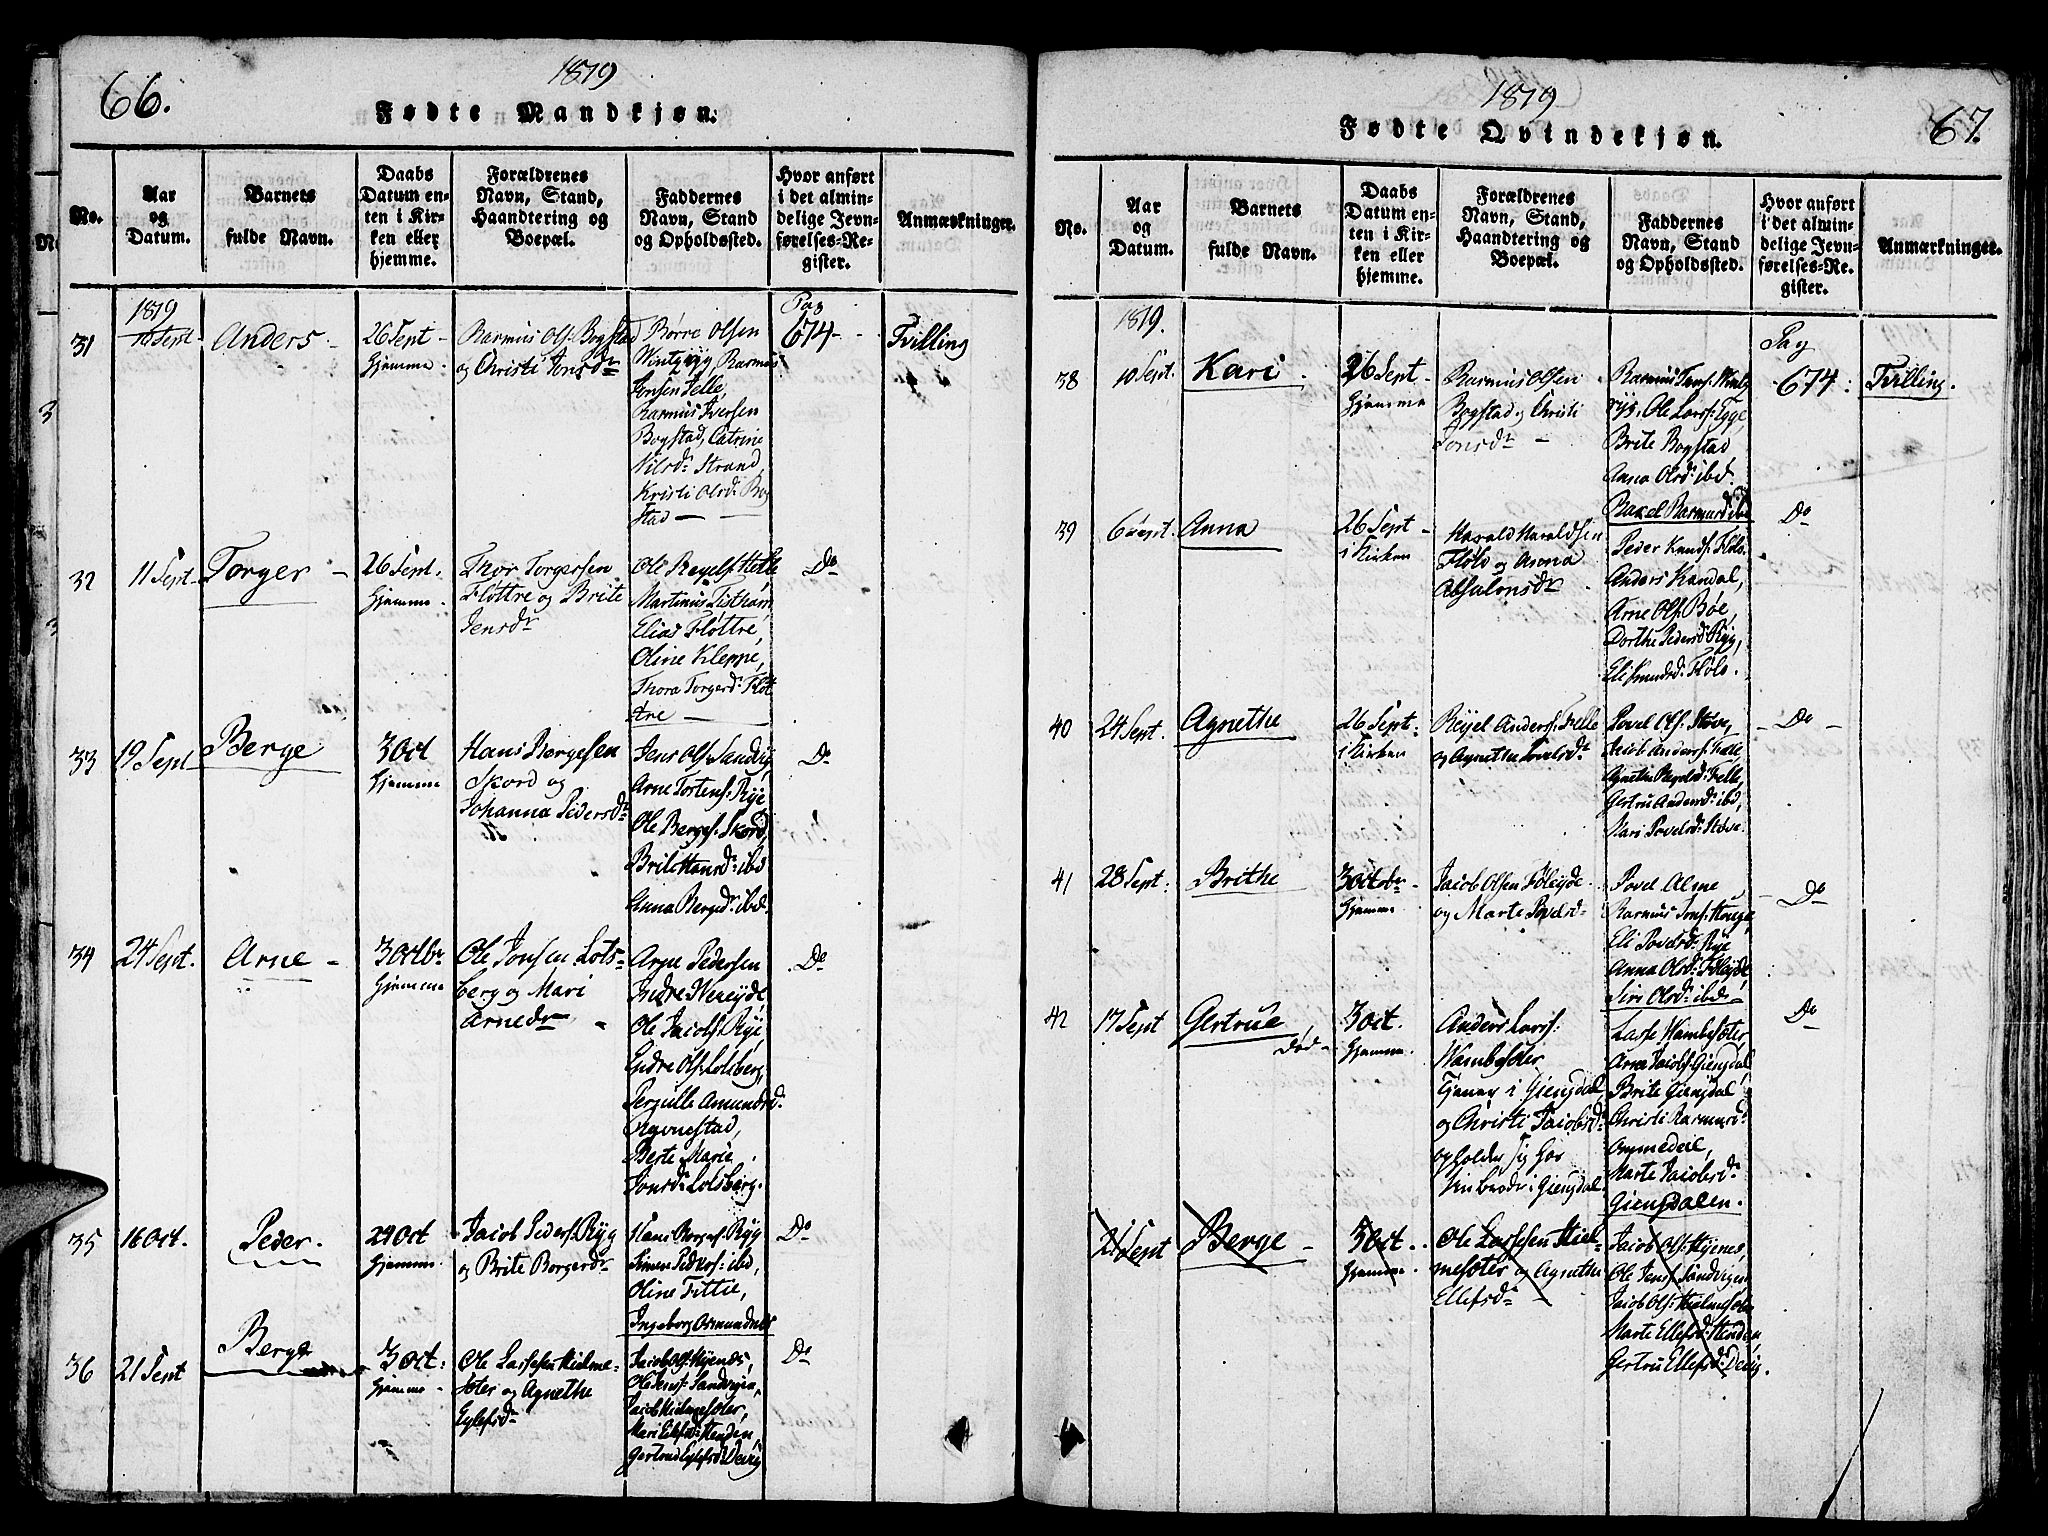 66.
1819
Fødte Mandkjøn.
No.
Aar
og
Datum.
Barnets
fulde Navn.
Daabs
Datum en-
ten i Kir-
ken eller
hjemme.
Forældrenes
Navn, Stand,
Haandtering og
Boepæl.
Faddernes
Navn, Stand
og Opholdssted.
Hvor anført
i det almin-
delige Jevn-
førelses-Re-
gister.
Anmærkninger.
31
1819
10 Sept
Anders
26 Sept
hjemme
Rasmus Ols: Bogstad
og Christi Jonsdr
Børre Olsen
Rasmus
Jonsen Felle,
Rasmus Iversen
Bogstad, Catrine
Nilsdr Strand,
Kristi Olsdr Bog
stad
Pag
674
Tvilling
32
11 Sept
Torger
26 Sept.
hjemme
Thor Torgersen
Fløttre og Brite
Jensdr
Ole Ragels: Hetle
Martinus Tistham,
Elias Fløttre,
Oline Kleppe,
Thora Torgersdr Fløt
tre
Do
33
19 Sept
Berge
3 Oct
hjemme
Hans Bergesen
Skord og
Johanna Pedersdr
Jens Ols: Sandvig,
Arne Tortens: Rye
Ole Berges: Skord,
Brite Hansdr ibd
Anna Bergsdr ibd.
Do
34
24 Sept.
Arne
3 Octbr
hjemme
Ole Jonsen Lots-
berg og Mari
Arnedr
Arne Pedersen
Indre Hereyde,
Ole Jacobs: Rye,
Endre Ols: Lotsberg,
Pernille Amundsdr
Ravnestad,
Berte Marie
Jonsdr Lotsberg.
Do
35
16 Oct.
Peder
24 Oct
hjemme
Jacob Peders: Ryg
og Brite Borgerdr
Hans Borges: Ryg
Simen Peders: ibd,
Oline Tittie,
Ingeborg Osmundnes
Do
36
21 Sept
Berge
3 Oct
hjemme
Ole Lassesen Hielme-
sæter og Agnethe
Eylefsdr
Jacob Ols: Hyenes,
Ole Jens: Sandvigen,
Jacob Hielmesæter,
Mari Ellefsdr Henden,
Gertrud Eylefsdr Devig
Do
67.
1819
Fødte Qvindekjøn.
No.
Aar
og
Datum.
Barnets
fulde Navn.
Daabs
Datum en-
ten i Kir-
ken eller
hjemme.
Forældrenes
Navn, Stand,
Haandtering og
Boepæl.
Faddernes
Navn, Stand
og Opholdssted.
Hvor anført
i det almin-
delige Jevn-
førelses-Re-
gister.
Anmærkninger.
38
1819.
10 Sept.
Kari
26 Sept
hjemme
Rasmus Olsen
Bogstad og Christi
Jonsdr
Rasmus Jons:
Ole Larss: Egge,
Brite Bogstad,
Anna Olsdr ibd.
Raxel Rasmusdr ibd
Pag
674
Tvilling.
39
6 Sept.
Anna
26 Sept
i Kirken
Harald Haraldsen
Fløld og Anna
Absalonsdr
Peder Knuds: Fløls.
Anders Kandal,
Arne Ols: Bøe,
Dorthe Pedersdr Ryg,
Eli Knudsdr Fløls.
Do
40
24 Sept.
Agnethe
26 Sept.
i Kirken
Reyel Anders: Felle
og Agnethe
Povel Ols: Støve,
Jacob Anders: Felle
Agnethe Ragelsdr Felle,
Gertru Andersdr ibd,
Mari Povelsdr Støve.
Do
41
28 Sept.
Brithe
3 Octbr
hjemme
Jacob Olsen Føleyde
og Marte Povelsdr
Povel Alme
Rasmus Jons: Houge,
Eli Povelsdr Rye
Anna Olsdr Føleyde
Siri Olsdr ibd
Do
42
17 Sept
Gertrue
død
3 Oct.
hjemme
Anders Larss:
Hambesæter
Tjener i Giengdal
og Christi Jacobsdr
opholder sig hos
sin broder i Giengdal
Lasse Hambesæter,
Arne Jacobs: Giengdal,
Brite Giengdal
Christi Rasmusdr
Ommedeie,
Marte Jacobsdr
Giengdalen.
Do
21 Sept
Berge
3 Oct
hjemme
Ole Lassesen Hiel-
mesæter og Agnethe
Ellefsdr
Jacob Ols: Hyenes,
Ole Jens: Sandvigen
Jacob Ols: Hielmesæter
Marte Ellefsdr Henden,
Gertru Ellefsdr Devig.